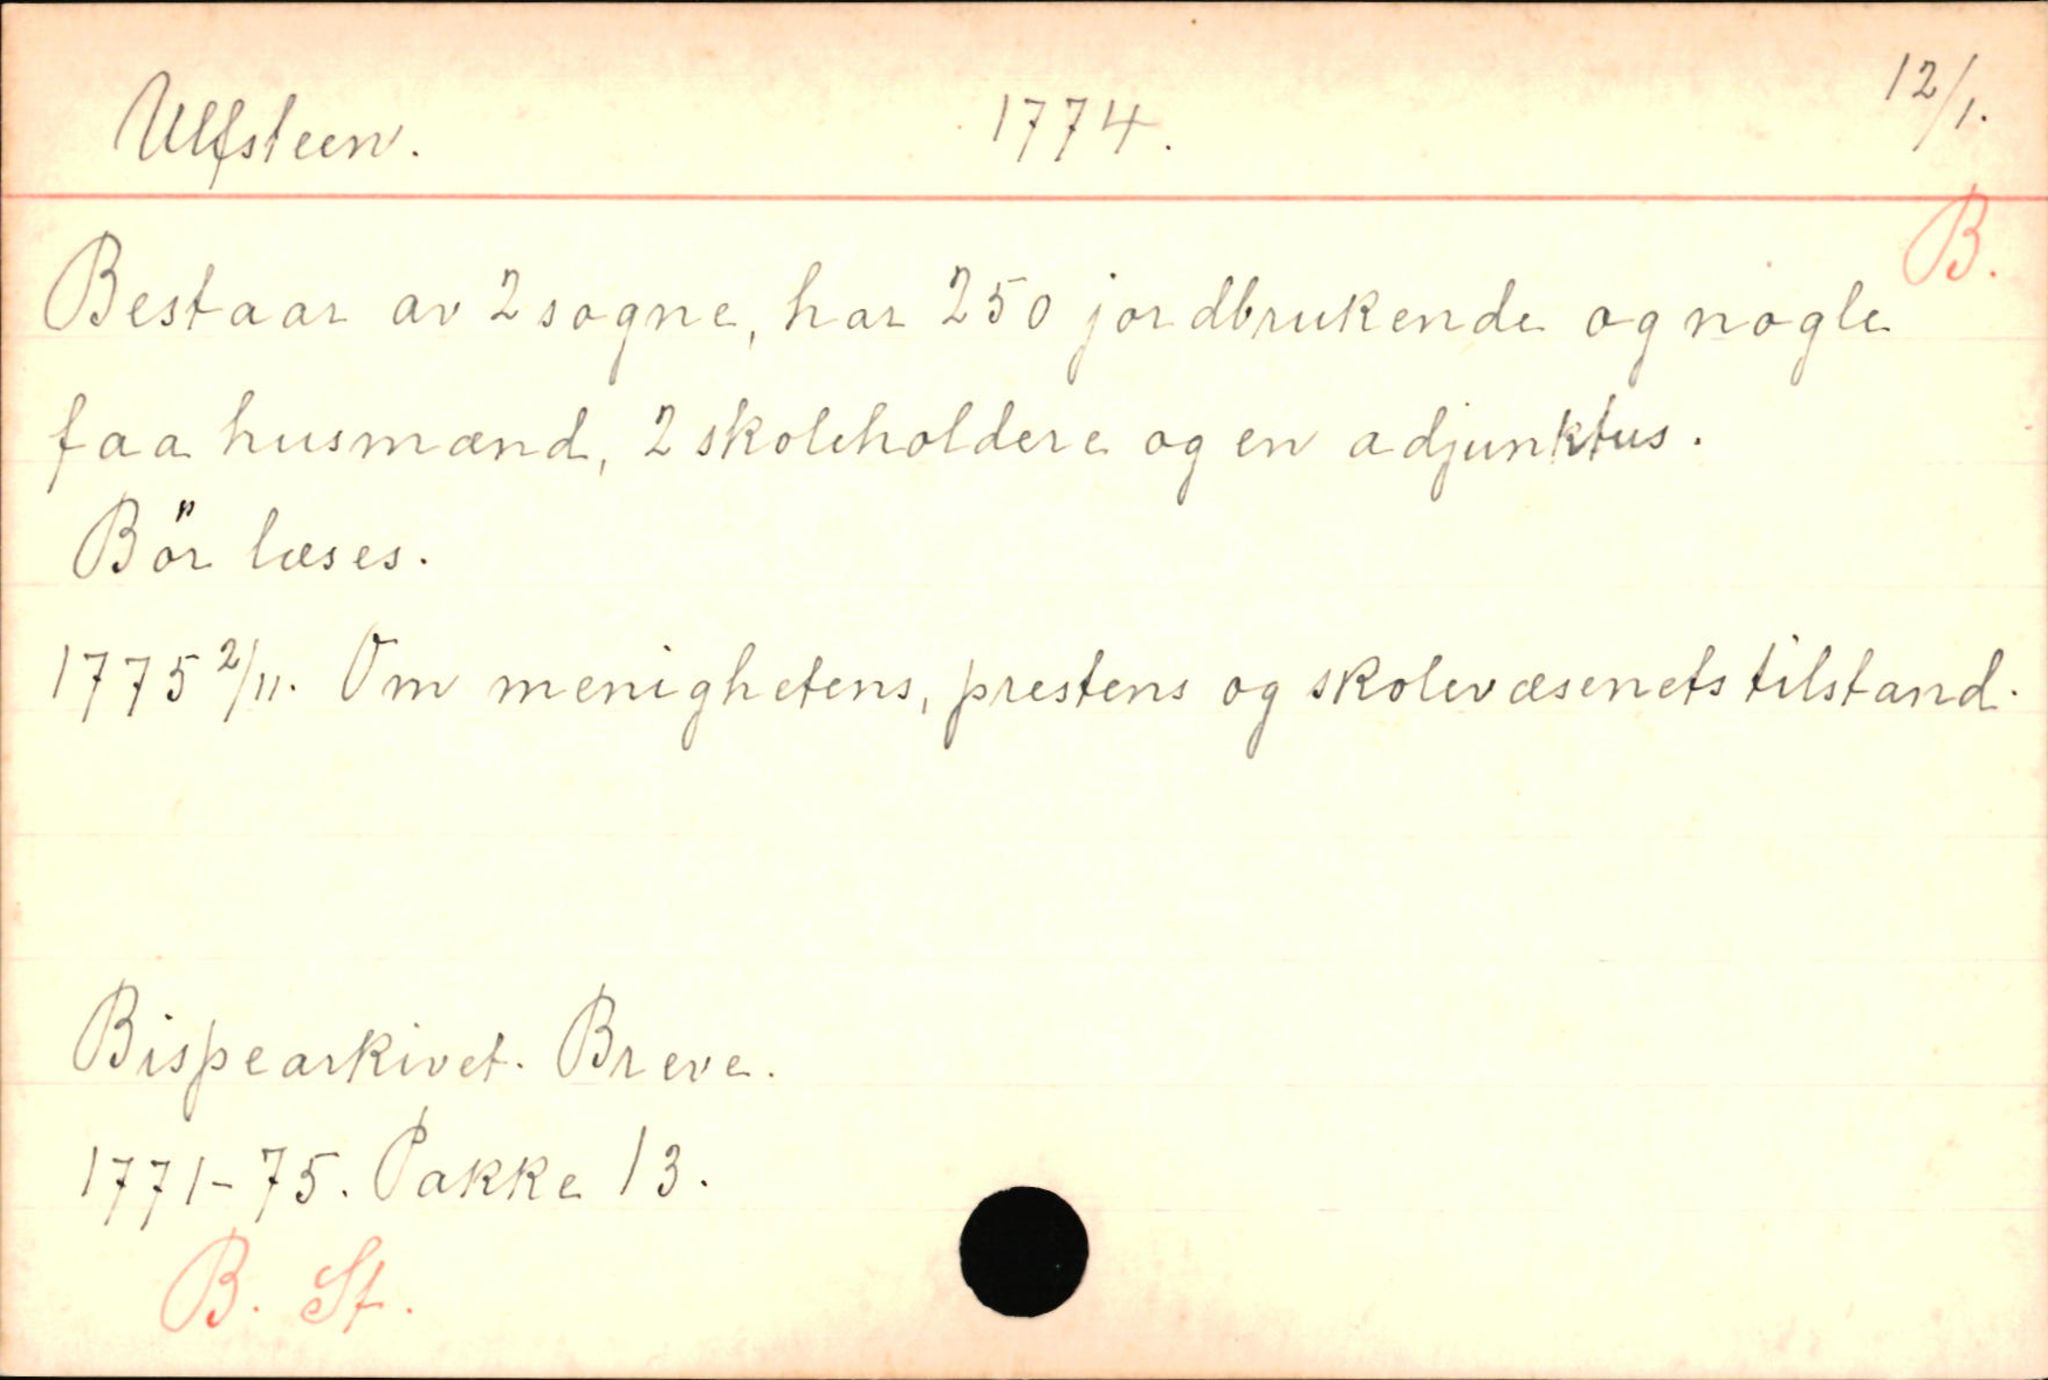 Ulfsteen. 1774. 12/1.
B.
Bestaar av 2 sogne, har 250 jordbrukende og nogle
faa husmænd, 2 skoleholdere og en adjunktus.
Bör læses.
1775 2/11. Om menighetens, prestens og skolevæsenets tilstand.
Bispearkivet. Breve.
1771-75. Pakke 13.
B. St.